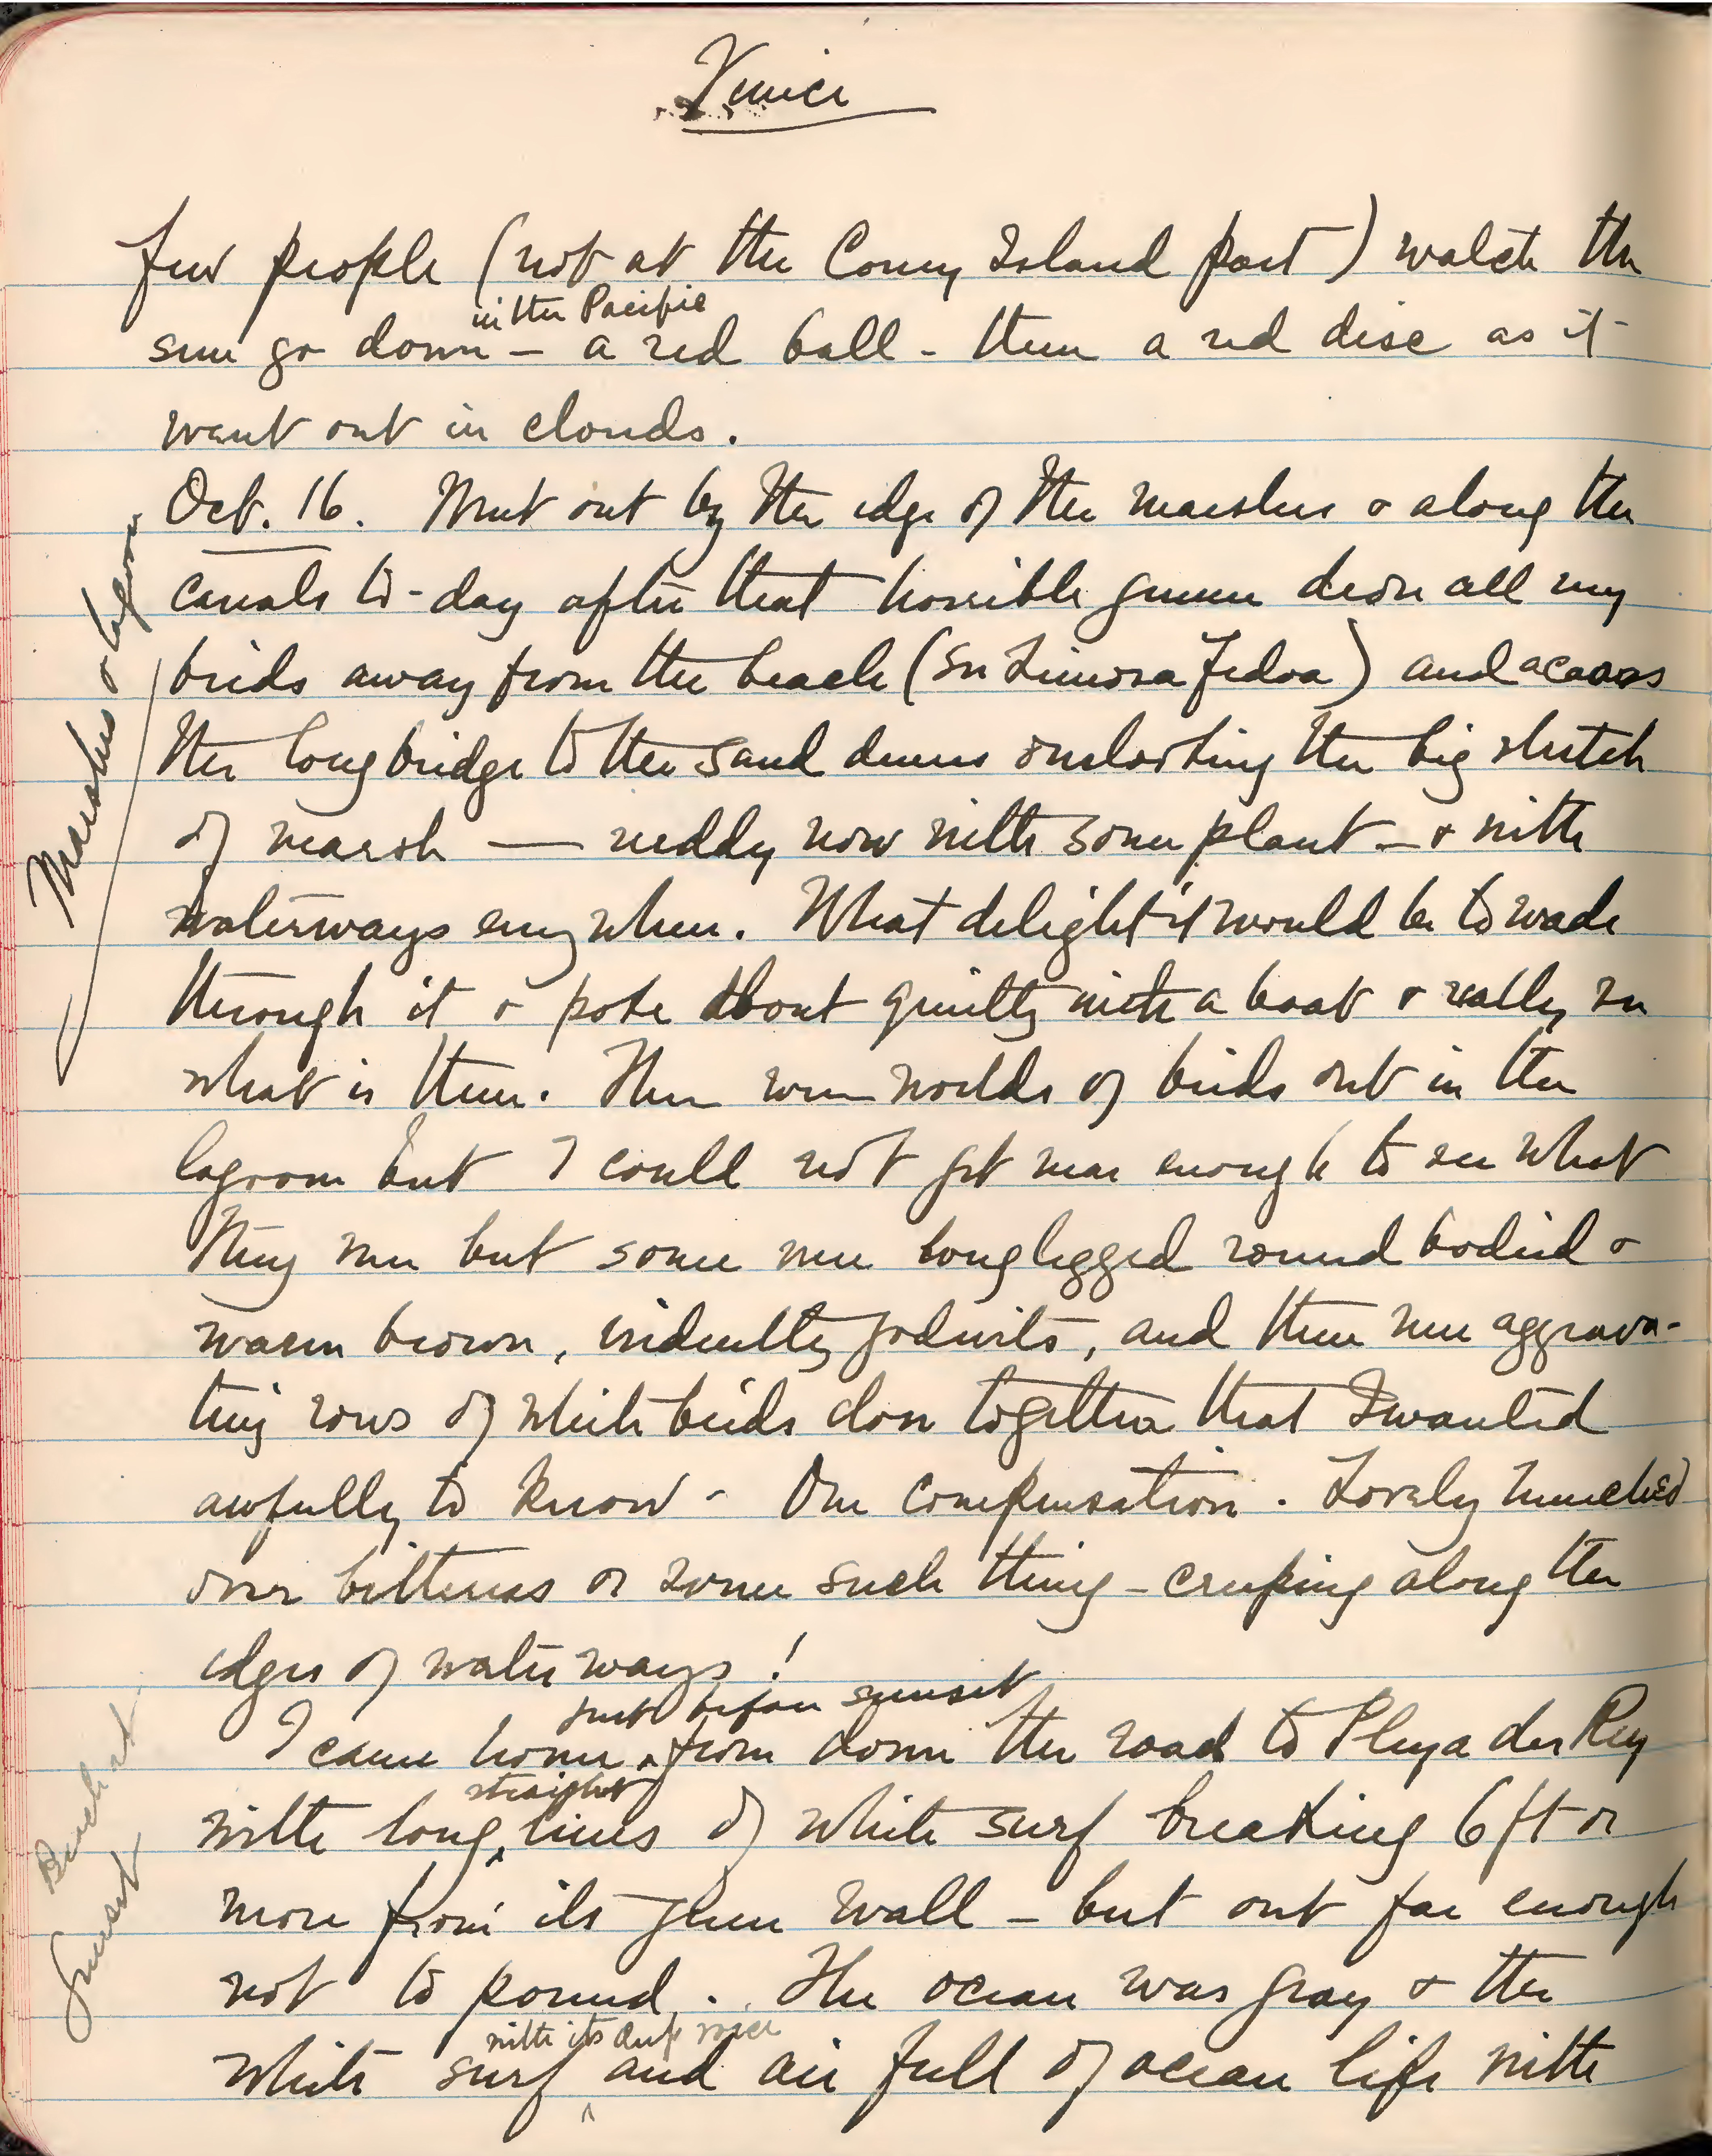 Venice
few people (not at the Coney Island part) watch the
in the Pacific
sun go down – a red ball – then a red disc as it
went out in clouds.
Oct. 16. Went out by the edge of the marshes & along the
canals to-day after that horrible gunner drove all my
birds away from the beach (See Limosa Fedoa) and across
the long bridge to the sand dunes overlooking the big stretch
of marsh — reddy now with some plant – & with
waterways everywhere. What delight it would be to wade
through it & poke about quietly with a boat & really see
what is there. There were worlds of birds out in the
lagoon but I could not get near enough to see what
they were but some were long legged round bodied &
warm brown, evidently godwits, and there were aggrava-
ting rows of white birds close together that I wanted
awfully to know – One compensation. Lovely hunched
over bitterns or some such thing – creeping along the
edges of water ways!
just before sunset
I came home from down the road to Playa del Rey
straight
with long lines of white surf breaking 6 ft or
more from its green wall – but out far enough
not to pound. The ocean was gray & the
with its deep voice
white surf and air full of ocean life with
Marshes & lagoon
Beach at
Sunset